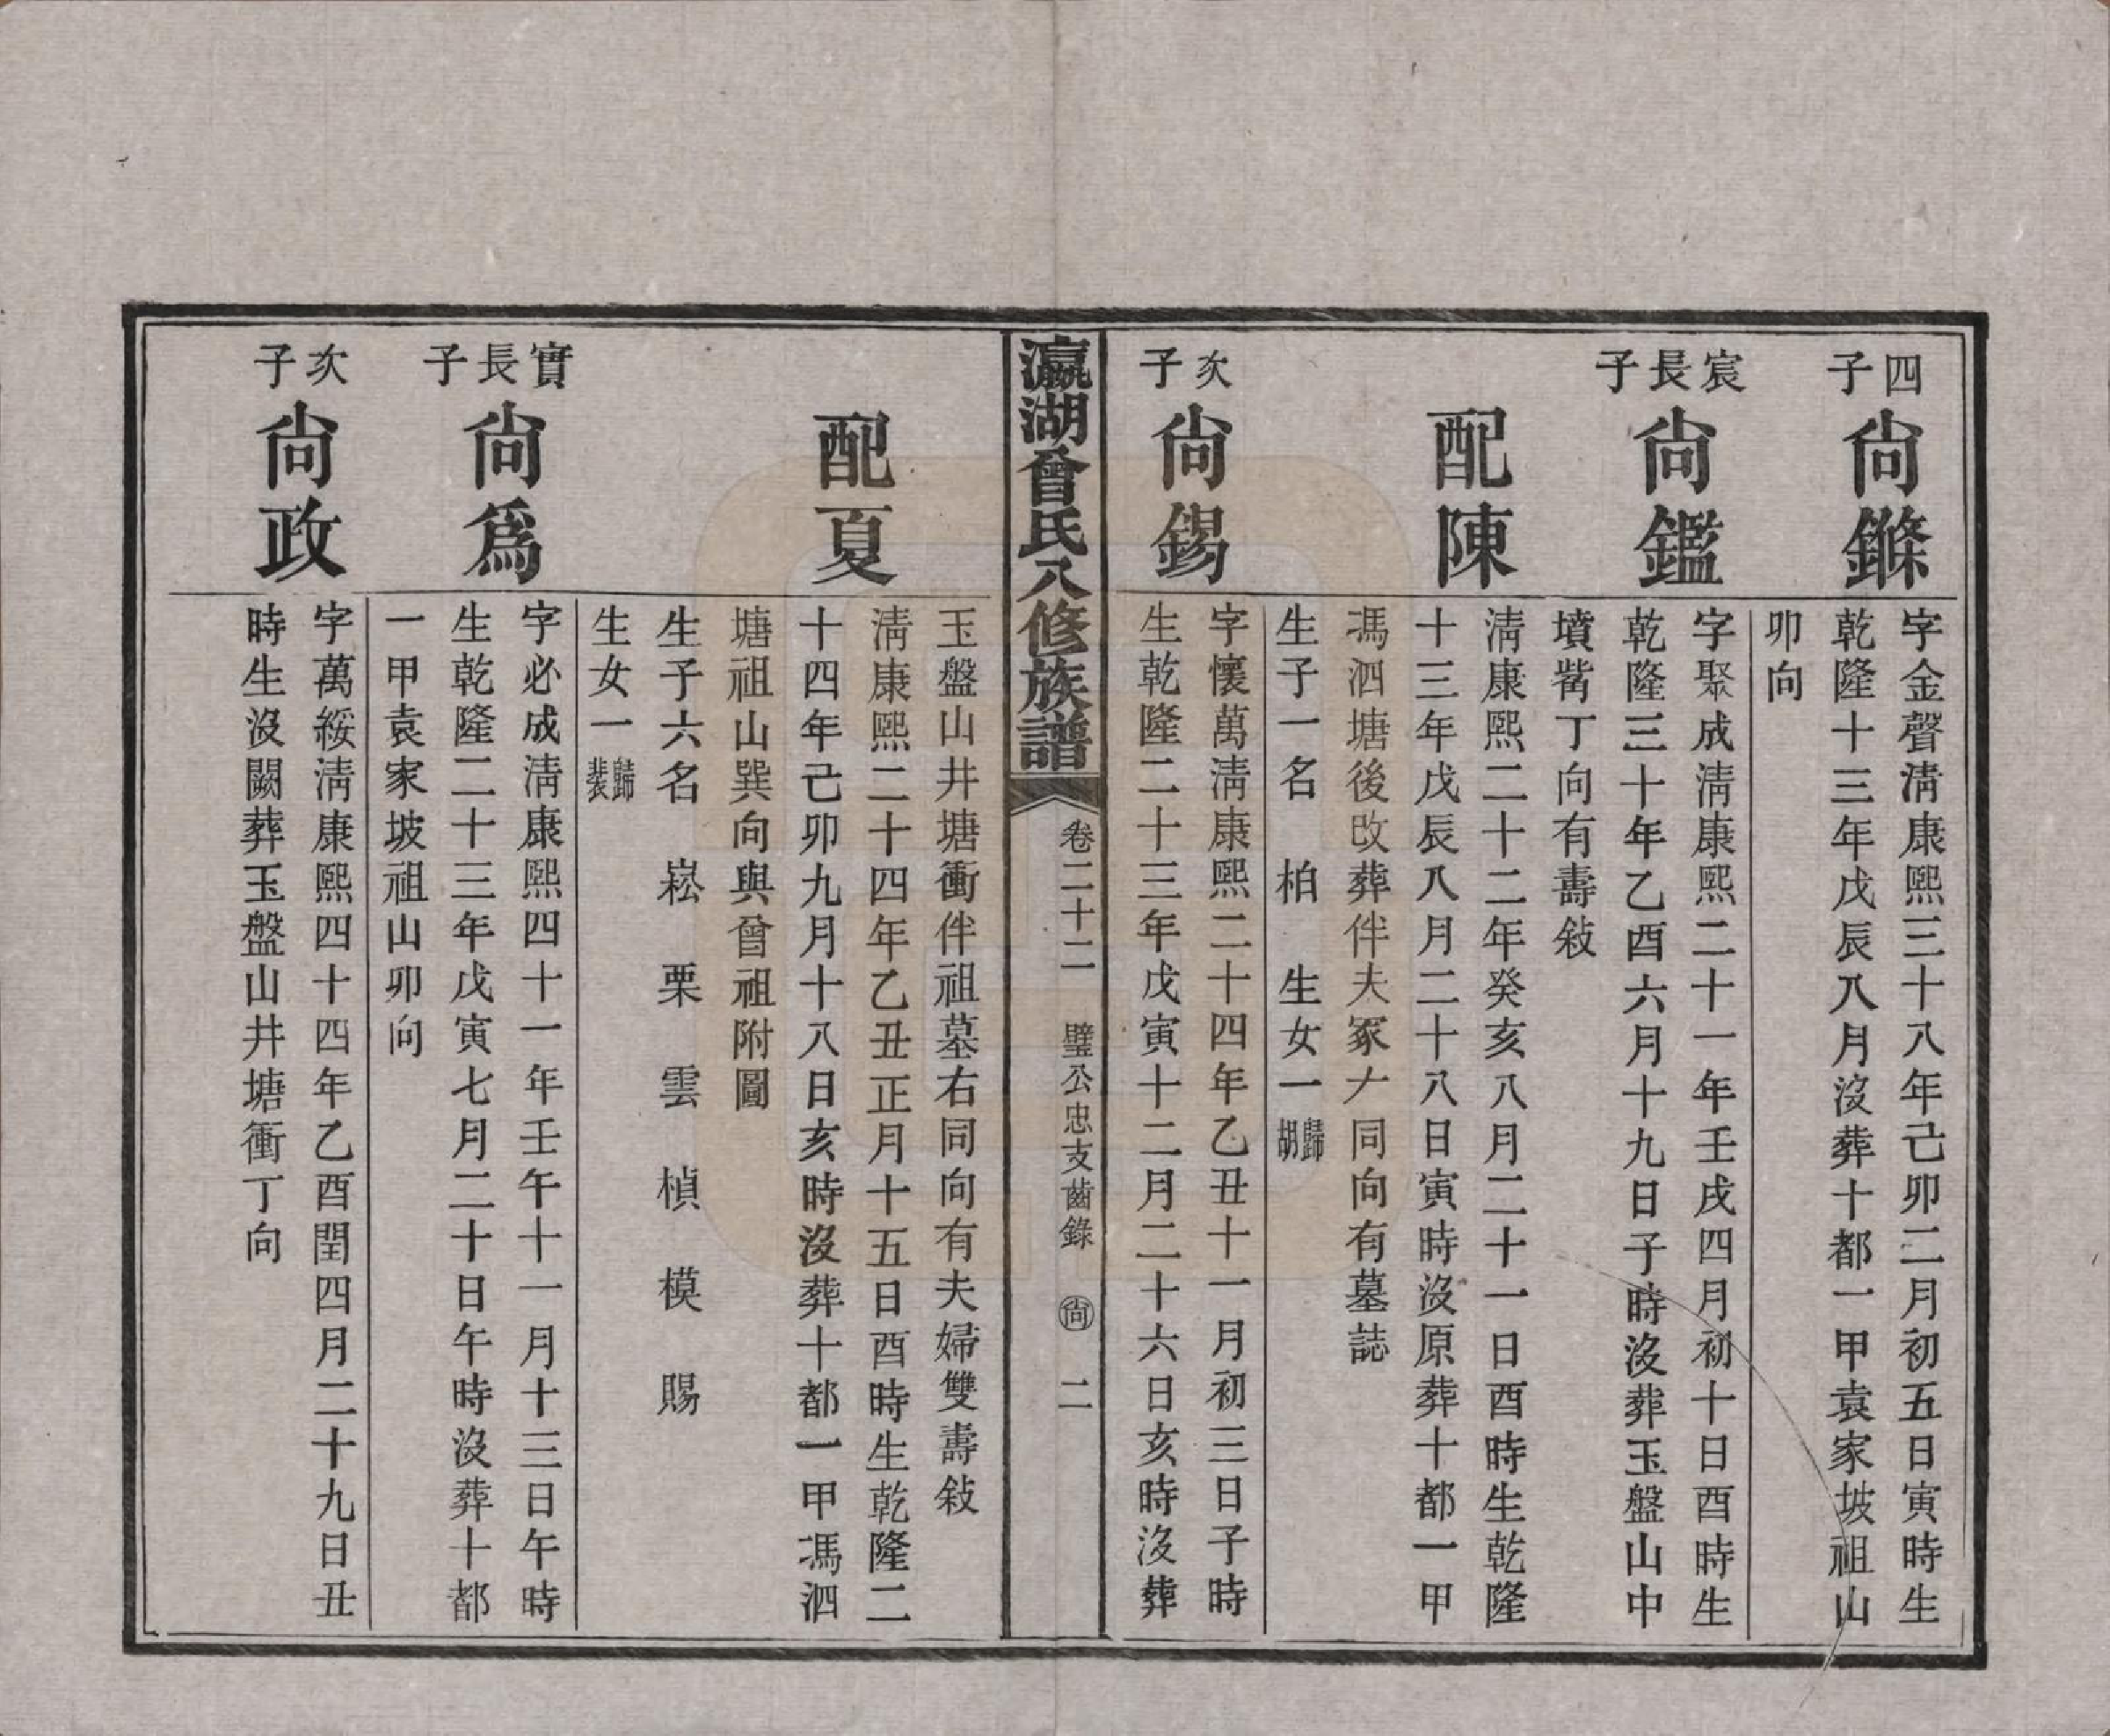 四子
尙鎀
字金聲淸康熙三十八年己卯二月初五日寅時生
乾隆十三年戊辰八月沒葬十都一甲袁家坡祖山
卯向
宸長子
尙鑑
字聚成淸康熙二十一年壬戌四月初十日酉時生
乾隆三十年乙酉六月十九日子時沒葬玉盤山中
墳觜丁向有壽敍
配陳
淸康熙二十二年癸亥八月二十一日酉時生乾隆
十三年戊辰八月二十八日寅時沒原葬十都一甲
馮泗塘後改葬伴夫冢𠂇同向有墓誌
生子一名 柏 生女一歸胡
次子
尙錫
字懷萬淸康熙二十四年乙丑十一月初三日子時
生乾隆二十三年戊寅十二月二十六日亥時沒葬
瀛湖曾氏八修族譜
卷二十二 璧公忠支齒錄 尙 二
玉盤山井塘衝伴祖墓右同向有夫婦雙壽敍
配夏
淸康熙二十四年乙丑正月十五日酉時生乾隆二
十四年己卯九月十八日亥時沒葬十都一甲馮泗
塘祖山巽向與曾祖附圖
生子六名 崧 栗 雲 楨 模 賜
生女一歸裴
實長子
尙爲
字必成淸康熙四十一年壬午十一月十三日午時
生乾隆二十三年戊寅七月二十日午時沒葬十都
一甲袁家坡祖山卯向
次子
尙政
字萬綏淸康熙四十四年乙酉閏四月二十九日丑
時生沒闕葬玉盤山井塘衝丁向